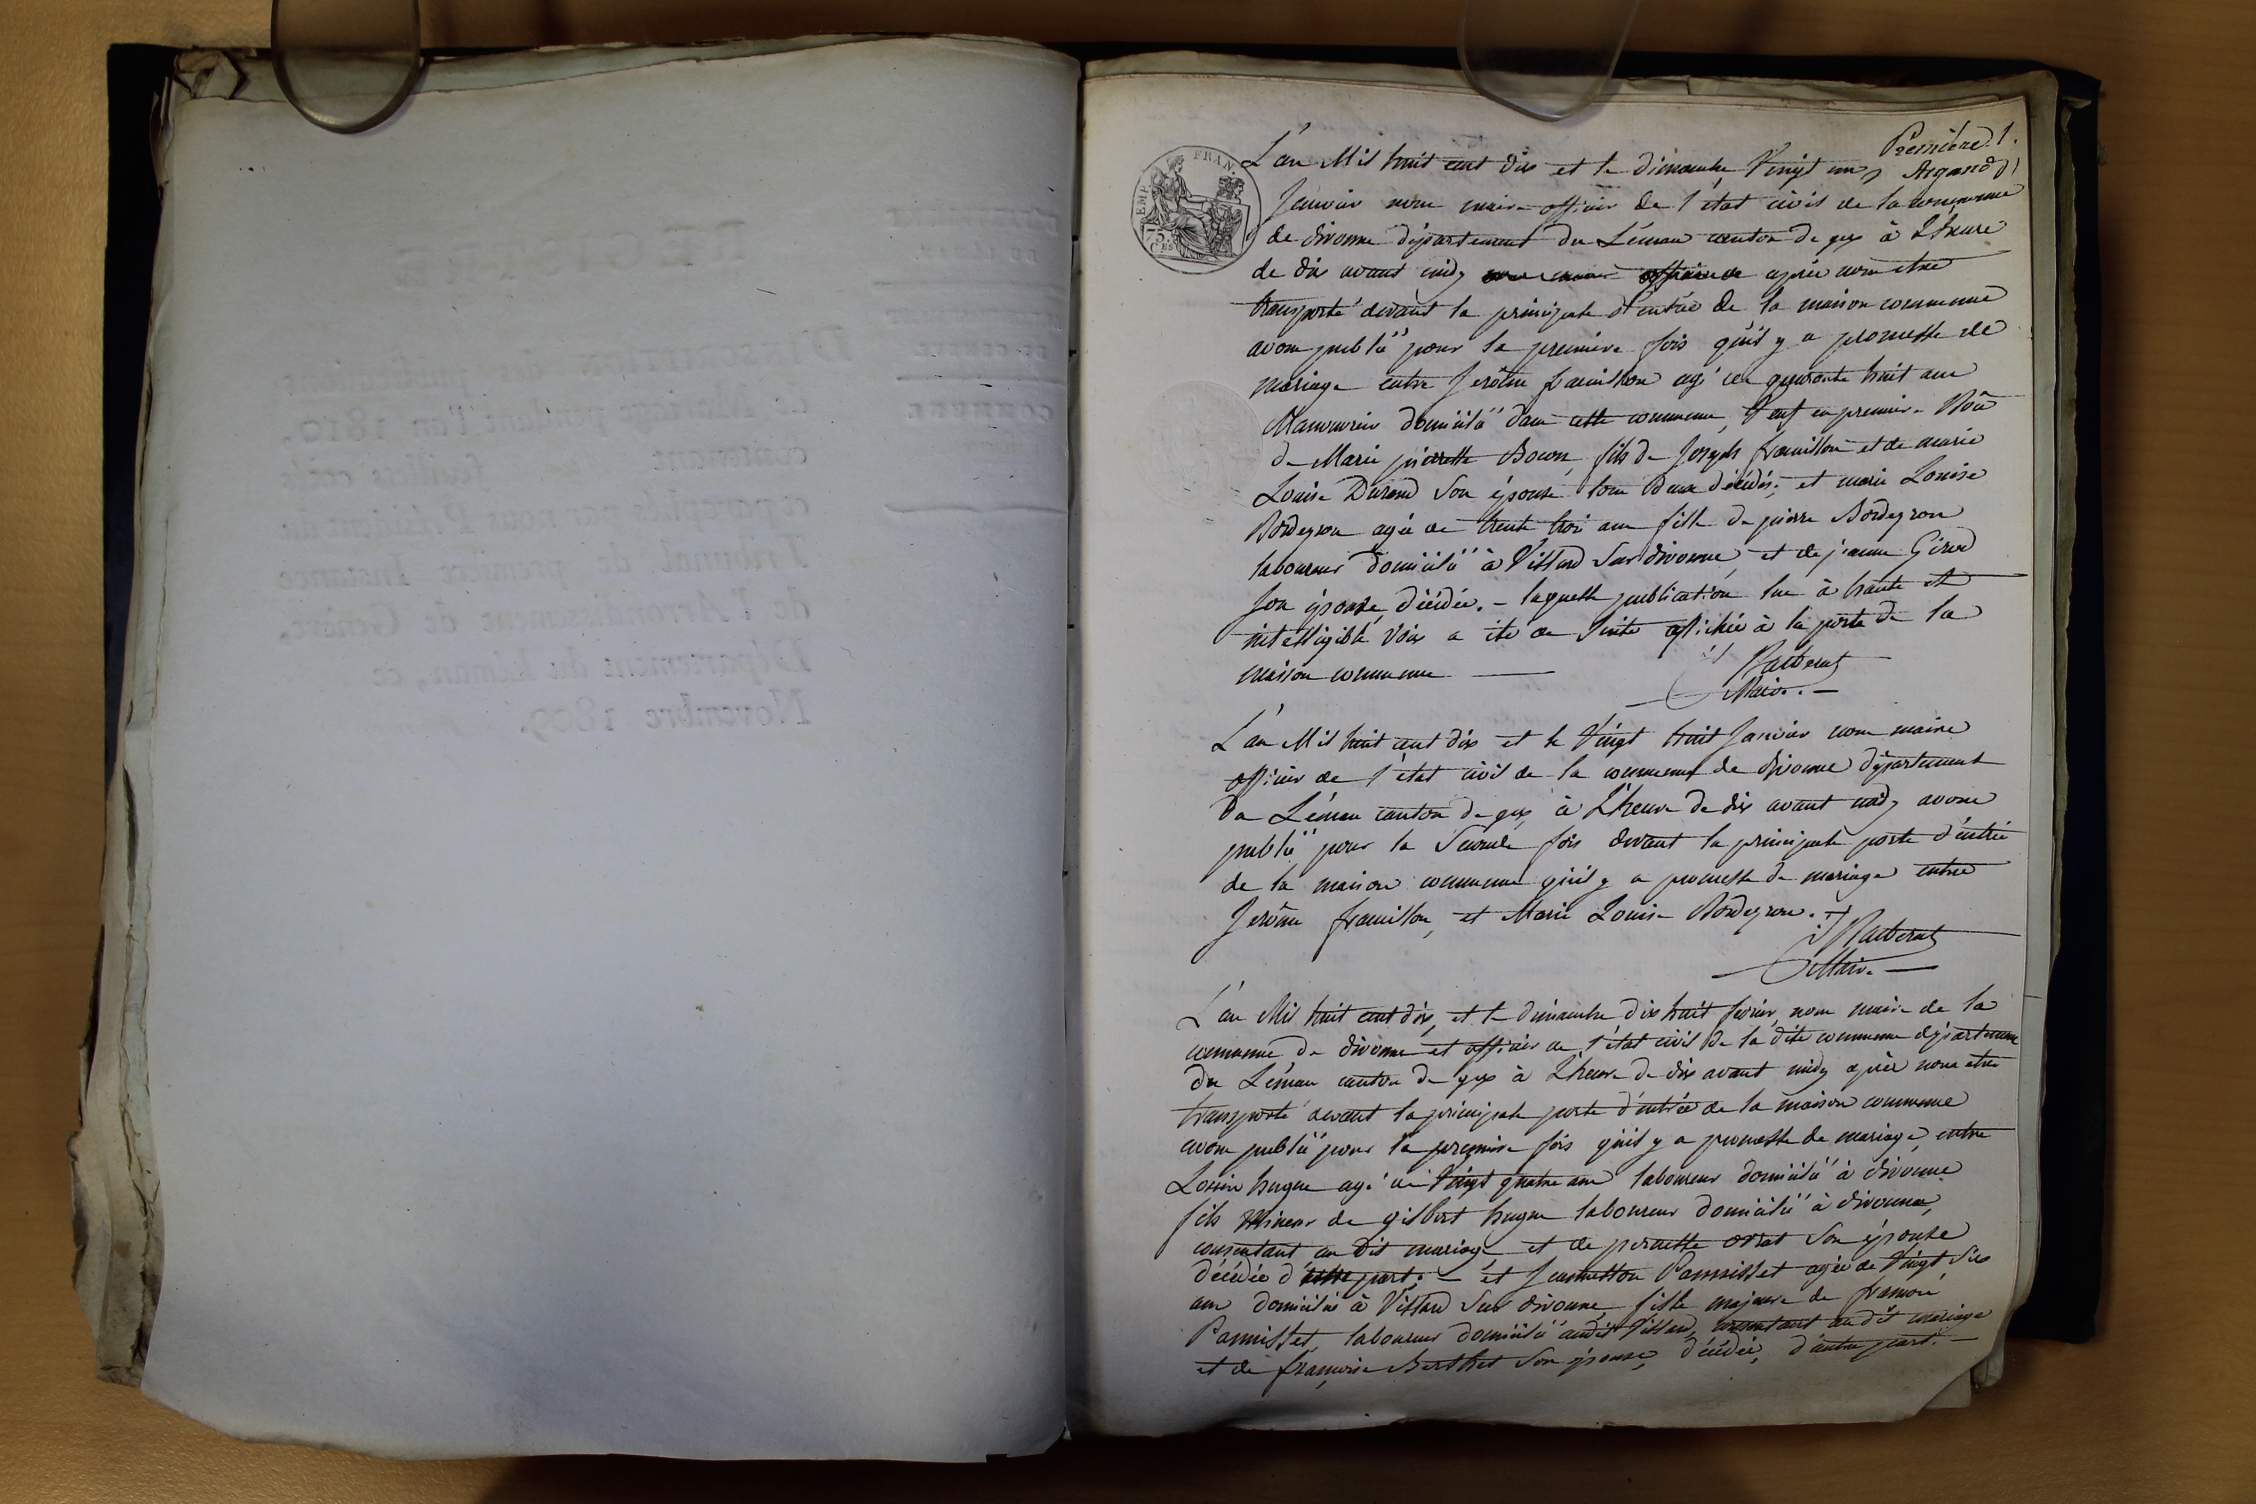 Première 1.
Argand
EMP. FRAN.
75 Ces
L'an Mil huit cent dix et le dimanche Vingt un
Janvier nous maire officier de l'état civil de la commune
de divonne département du Léman canton de gex à L'heure
de dix avant midy après nous etre
transporté devant la principale d'entrée de la maison commune
avons publié pour la première fois qu'il y a promesse de
mariage entre Jerôme fraichon agé de quarante huit ans
Manouvrier domicilié dans cette commune, Veuf en premier
de Marie pierrette Bocon, fils de Joseph et de marie
Louise Durand Son épouse tous deux décédés; et marie Louise
Bordeyron agée de trente trois ans fille de pierre Bordeyron
laboureur domicilié à Villard Sur divonne et de jeanne Girod
Son épouse, décédée. - laquelle publication lue à haute et
intelligible Voix a été de Suite affichée à la porte de la
maison commune
Maire.
L'an Mil huit cent dix et le Vingt huit Janvier nous maire
officier de l'état civil de la commune de divonne département
du Léman canton de gex à L'heure de dix avant midy avons
publié pour la Seconde fois devant la principale porte d'entrée
de la maison commune qu'il y a promesse de mariage entre
Jerôme et Marie Louise Bordeyron.
Maire.
L'an Mil huit cent dix, et le dimanche dix huit fevrier nous maire de la
commune de divonne et officier de l'état civil de la dite commune département
du Léman canton de gex à L'heure de dix avant midy après nous etre
transporté devant la principale porte d'entrée de la maison commune
avons publié pour la première fois qu'il y a promesse de mariage entre
hugue agé de Vingt quatre ans laboureur domicilié à divonne
fils Mineur de gilbert hugue laboureur domicilié à divonne,
consentant au dit mariage et de pernette Son épouse
décédée d' part; - et Jeannetton Pannisset agée de Vingt Six
ans domiciliée à Villard Sur divonne, fille majeure de
Pannisset, laboureur domicilié audit Villard, consentant audit mariage
et de françoise Berthet Son épouse, décédée, d'autre part. -